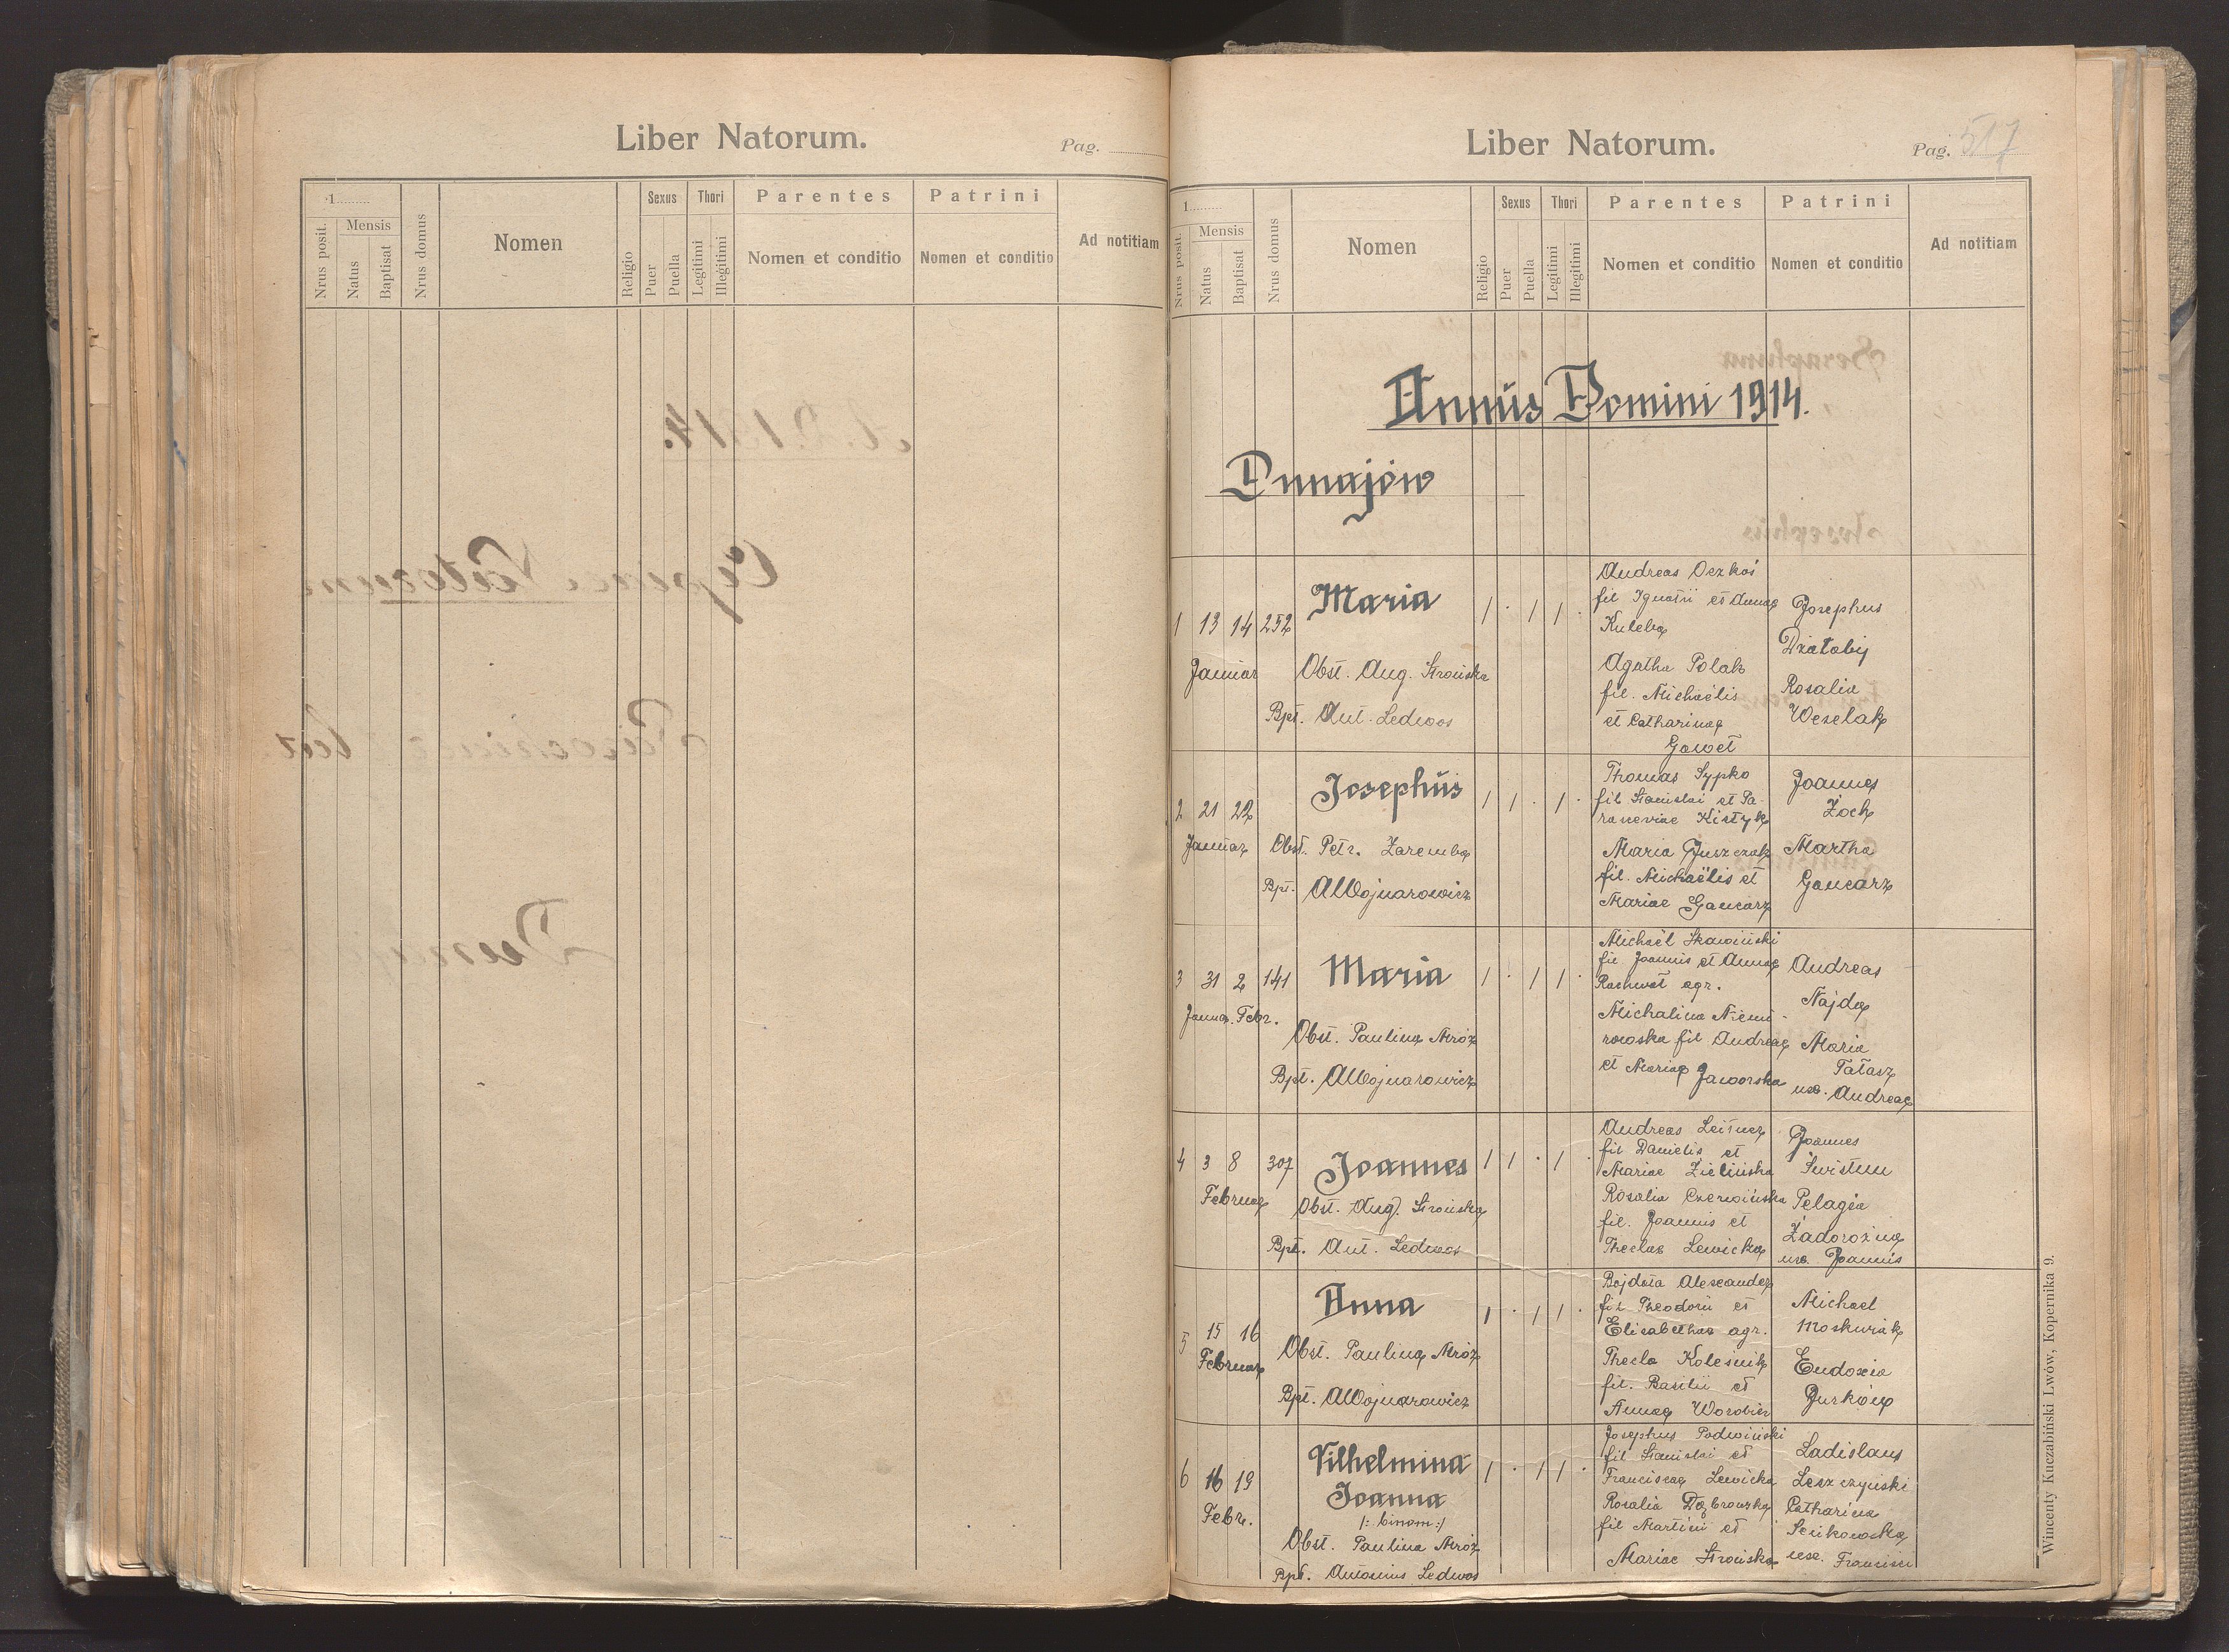 Liber Natorum.
Pag.
1
Nrus posit.
Mensis
Natus
Baptisat
Nrus domus
Nomen
Religio
Sexus
Puer
Puella
Thori
Legitimi
Illegitimi
Parentes
Nomen et conditio
Patrini
Nomen et conditio
Ad notitiam
Liber Natorum.
Pag. 517
1
Nrus posit.
Mensis
Natus
Baptisat
Nrus domus
Nomen
Religio
Sexus
Puer
Puella
Thori
Legitimi
Illegitimi
Parentes
Nomen et conditio
Patrini
Nomen et conditio
Ad notitiam
Annus Domini 1914.
Dunajów
1 13 14 252
Januar
Maria
Obst. Aug. Srońska
Bpt. Ant. Ledwos
1 · 1 1 ·
Andreas Oczkoś
fil Ignatii et Annae
Kuleba
Agatha Polak
fil. Michaëlis
et Catharinae
Gaweł
Josephus
Działoby
Rosalia
Weselak
2 21 22
Januar
Josephus
Obst. Petr. Zaremba
Bpt. AWojnarowicz
1 1 · 1 ·
Thomas Sypko
fil Stanislai et Pa-
rasceviae Kistyk
Maria Juszczak
fil. Michaëlis et
Mariae Gancarz
Joannes
Żoch
Martha
Gancarz
3 31 2 141
Januar. Febr.
Maria
Obst. Paulina Mróz
Bpt. AWojnarowicz
1 · 1 1 ·
Michaël Skawiński
fil. Joannis et Annae
Rachwał agr.
Michalina Niemi-
rowska fil Andreae
et Mariae Jaworska
Andreas
Najda
Maria
Tatasz
ux. Andreae
4 3 8 307
Februar
Joannes
Obst. Aug. Srońska
Bpt. Ant. Ledwos
1 1 · 1 ·
Andreas Leitner
fil Danielis et
Mariae Zielińska
Rosalia Czerwińska
fil. Joannis et
Theclae Lewicka
Joannes
Świstun
Pelagia
Zadorożna
ux. Joannis
5 15 16
Februar
Anna
Obst. Paulina Mróz
Bpt. AWojnarowicz
1 · 1 1 ·
Bojdoła Alexander
fil Theodorii et
Elisabethae agr.
Thecla Koleśnik
fil. Basilii et
Annae Worobiec
Michael
Moskwiak
Eudoxia
Jurków
6 16 19
Febr.
Vilhelmina
Joanna
/: binom :/
Obst. Paulina Mróz
Bpt. Antonius Ledwos
1 · 1 1 ·
Josephus Podwiński
fil Stanislai et
Franciscae Lewicka
Rosalia Dąbrowska
fil Martini et
Mariae Srońska
Ladislaus
Leszczyński
Catharina
Senkowska
ux. Francisci
Wincenty Kuczabiński Lwów, Kopernika 9.